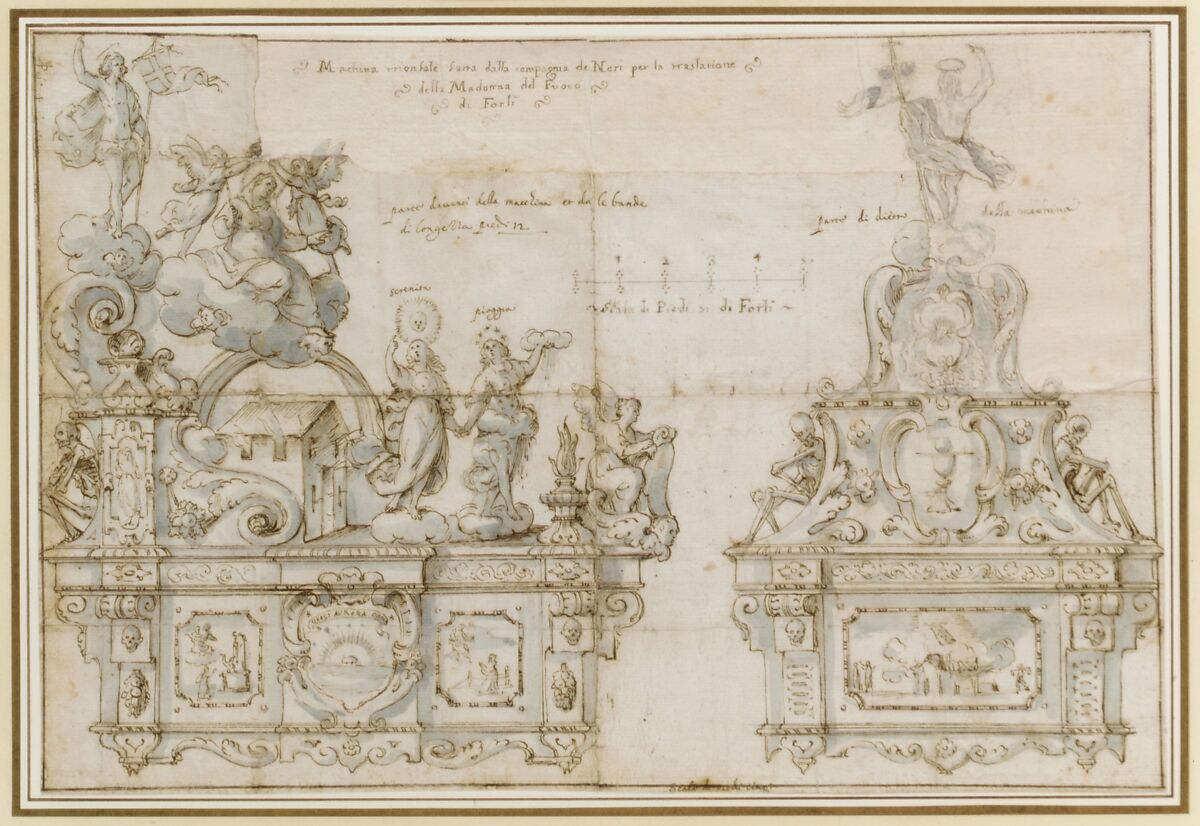 Machina trionfale fatta dalla compagnia de Neri per la traslatione
della Madonna del Fuoco
di Forlì
parte davanti della machina et da le bande
di longezza piedi 12
parte di dietro della machina
1 2 3 4 5
Scala di Piedi 5 di Forlì
serenita
pioggia
Scala di piedi cinque